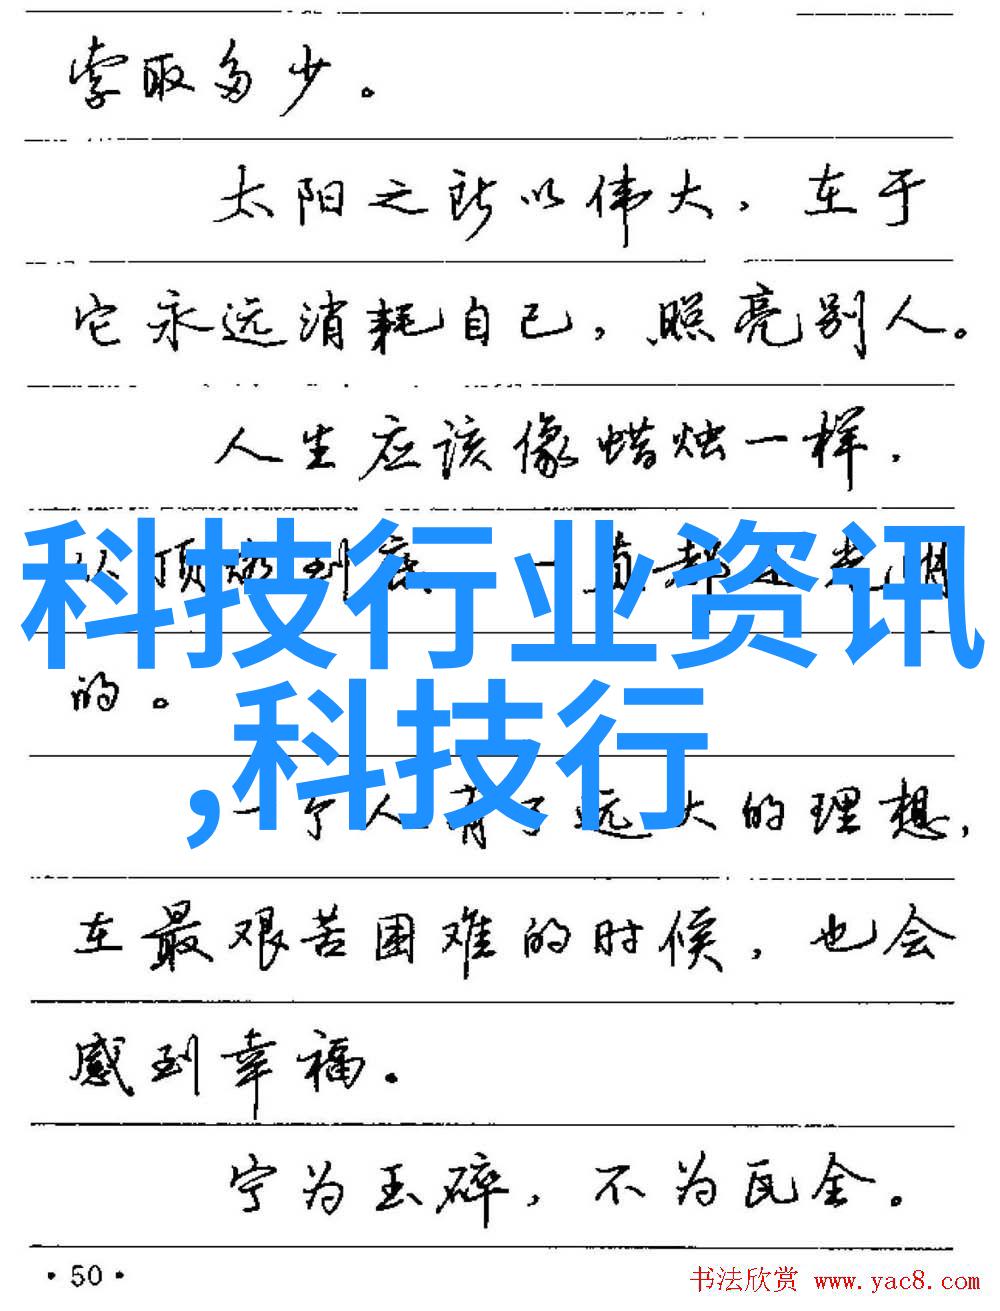 索取多少。
太阳之所以伟大，在于
它永远消耗自己，照亮别人。
人生应该像蜡烛一样，
从顶燃到底，一直都是光明
科技行业资讯
的。
,科技行
一个人有了远大的理想，
在最艰苦困难的时候，也会
感到幸福。
宁为玉碎，不为瓦全。
·50·
书法欣赏 www.yac8.com